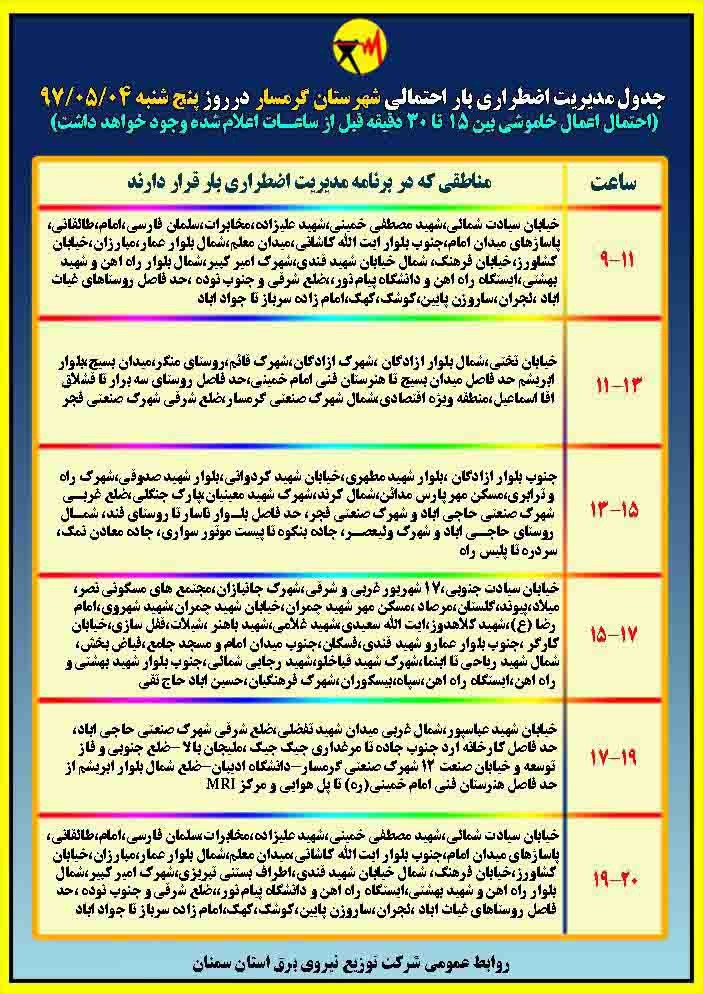 جدول مدیریت اضطراری بار احتمالی شهرستان گرمسار در روز پنج شنبه ۹۷/۰۵/۰۴
(احتمال اعمال خاموشی بین ۱۵ تا ۳۰ دقیقه قبل از ساعات اعلام شده وجود خواهد داشت)
ساعت
مناطقی که در برنامه مدیریت اضطراری بار قرار دارند
۹-۱۱
خیابان سیادت شمالی،شهید مصطفی خمینی،شهید علیزاده،مخابرات،سلمان فارسی،امام،طالقانی،
پاساژهای میدان امام،جنوب بلوار ایت الله کاشانی،میدان معلم،شمال بلوار عمار،مبارزان،خیابان
کشاورز،خیابان فرهنگ، شمال خیابان شهید قندی،شهرک امیر کبیر،شمال بلوار راه اهن و شهید
بهشتی،ایستگاه راه اهن و دانشگاه پیام نور،،ضلع شرقی و جنوب نوده ،حد فاصل روستاهای غیاث
اباد ،نجران،ساروزن پایین،کوشک،کهک،امام زاده سرباز تا جواد اباد
۱۱-۱۳
خیابان تختی،شمال بلوار ازادگان ،شهرک ازادگان،شهرک قائم،روستای منگر،میدان بسیج،بلوار
ابریشم حد فاصل میدان بسیج تا هنرستان فنی امام خمینی،حد فاصل روستای سه برار تا قشلاق
اقا اسماعیل،منطقه ویژه اقتصادی،شمال شهرک صنعتی گرمسار،ضلع شرقی شهرک صنعتی فجر
۱۳-۱۵
جنوب بلوار ازادگان ،بلوار شهید مطهری،خیابان شهید کردوانی،بلوار شهید صدوقی،شهرک راه
و ترابری،مسکن مهر پارس مدائن،شمال کرند،شهرک شهید معینیان،پارک جنگلی،ضلع غربی
شهرک صنعتی حاجی اباد و شهرک صنعتی فجر، حد فاصل بلوار تاسار تا روستای فند، شمال
روستای حاجی اباد و شهرک ولیعصر، جاده بنکوه تا پیست موتور سواری، جاده معادن نمک،
سردره تا پلیس راه
۱۵-۱۷
خیابان سیادت جنوبی،۱۷ شهریور غربی و شرقی،شهرک جانبازان،مجتمع های مسکونی نصر،
میلاد،پیوند،گلستان،مرصاد ،مسکن مهر شهید چمران،خیابان شهید چمران،شهید شهروی،امام
رضا (ع)،شهید کلاهدوز،ایت الله سعیدی،شهید غلامی،شهید باهنر ،شیلات،قفل سازی،خیابان
کارگر ،جنوب بلوار عمارو شهید قندی،فسکان،جنوب میدان امام و مسجد جامع،فیاض بخش،
شمال شهید ریاحی تا ابنما،شهرک شهید قباخلو،شهید رجایی شمالی،جنوب بلوار شهید بهشتی و
راه اهن،ایستگاه راه اهن،سپاه،بیسکوران،شهرک فرهنگیان،حسین اباد حاج تقی
۱۷-۱۹
خیابان شهید عباسپور،شمال غربی میدان شهید تفضلی،ضلع شرقی شهرک صنعتی حاجی اباد،
حد فاصل کارخانه ارد جنوب جاده تا مرغداری جیک جیک ،ملیجان بالا -ضلع جنوبی و فاز
توسعه و خیابان صنعت ۱۲ شهرک صنعتی گرمسار-دانشگاه ادیبان-ضلع شمال بلوار ابریشم از
حد فاصل هنرستان فنی امام خمینی(ره) تا پل هوایی و مرکز MRI
۱۹-۲۰
خیابان سیادت شمالی،شهید مصطفی خمینی،شهید علیزاده،مخابرات،سلمان فارسی،امام،طالقانی،
پاساژهای میدان امام،جنوب بلوار ایت الله کاشانی،میدان معلم،شمال بلوار عمار،مبارزان،خیابان
کشاورز،خیابان فرهنگ، شمال خیابان شهید قندی،اطراف بستنی تبریزی،شهرک امیر کبیر،شمال
بلوار راه اهن و شهید بهشتی،ایستگاه راه اهن و دانشگاه پیام نور،،ضلع شرقی و جنوب نوده ،حد
فاصل روستاهای غیاث اباد ،نجران،ساروزن پایین،کوشک،کهک،امام زاده سرباز تا جواد اباد
روابط عمومی شرکت توزیع نیروی برق استان سمنان